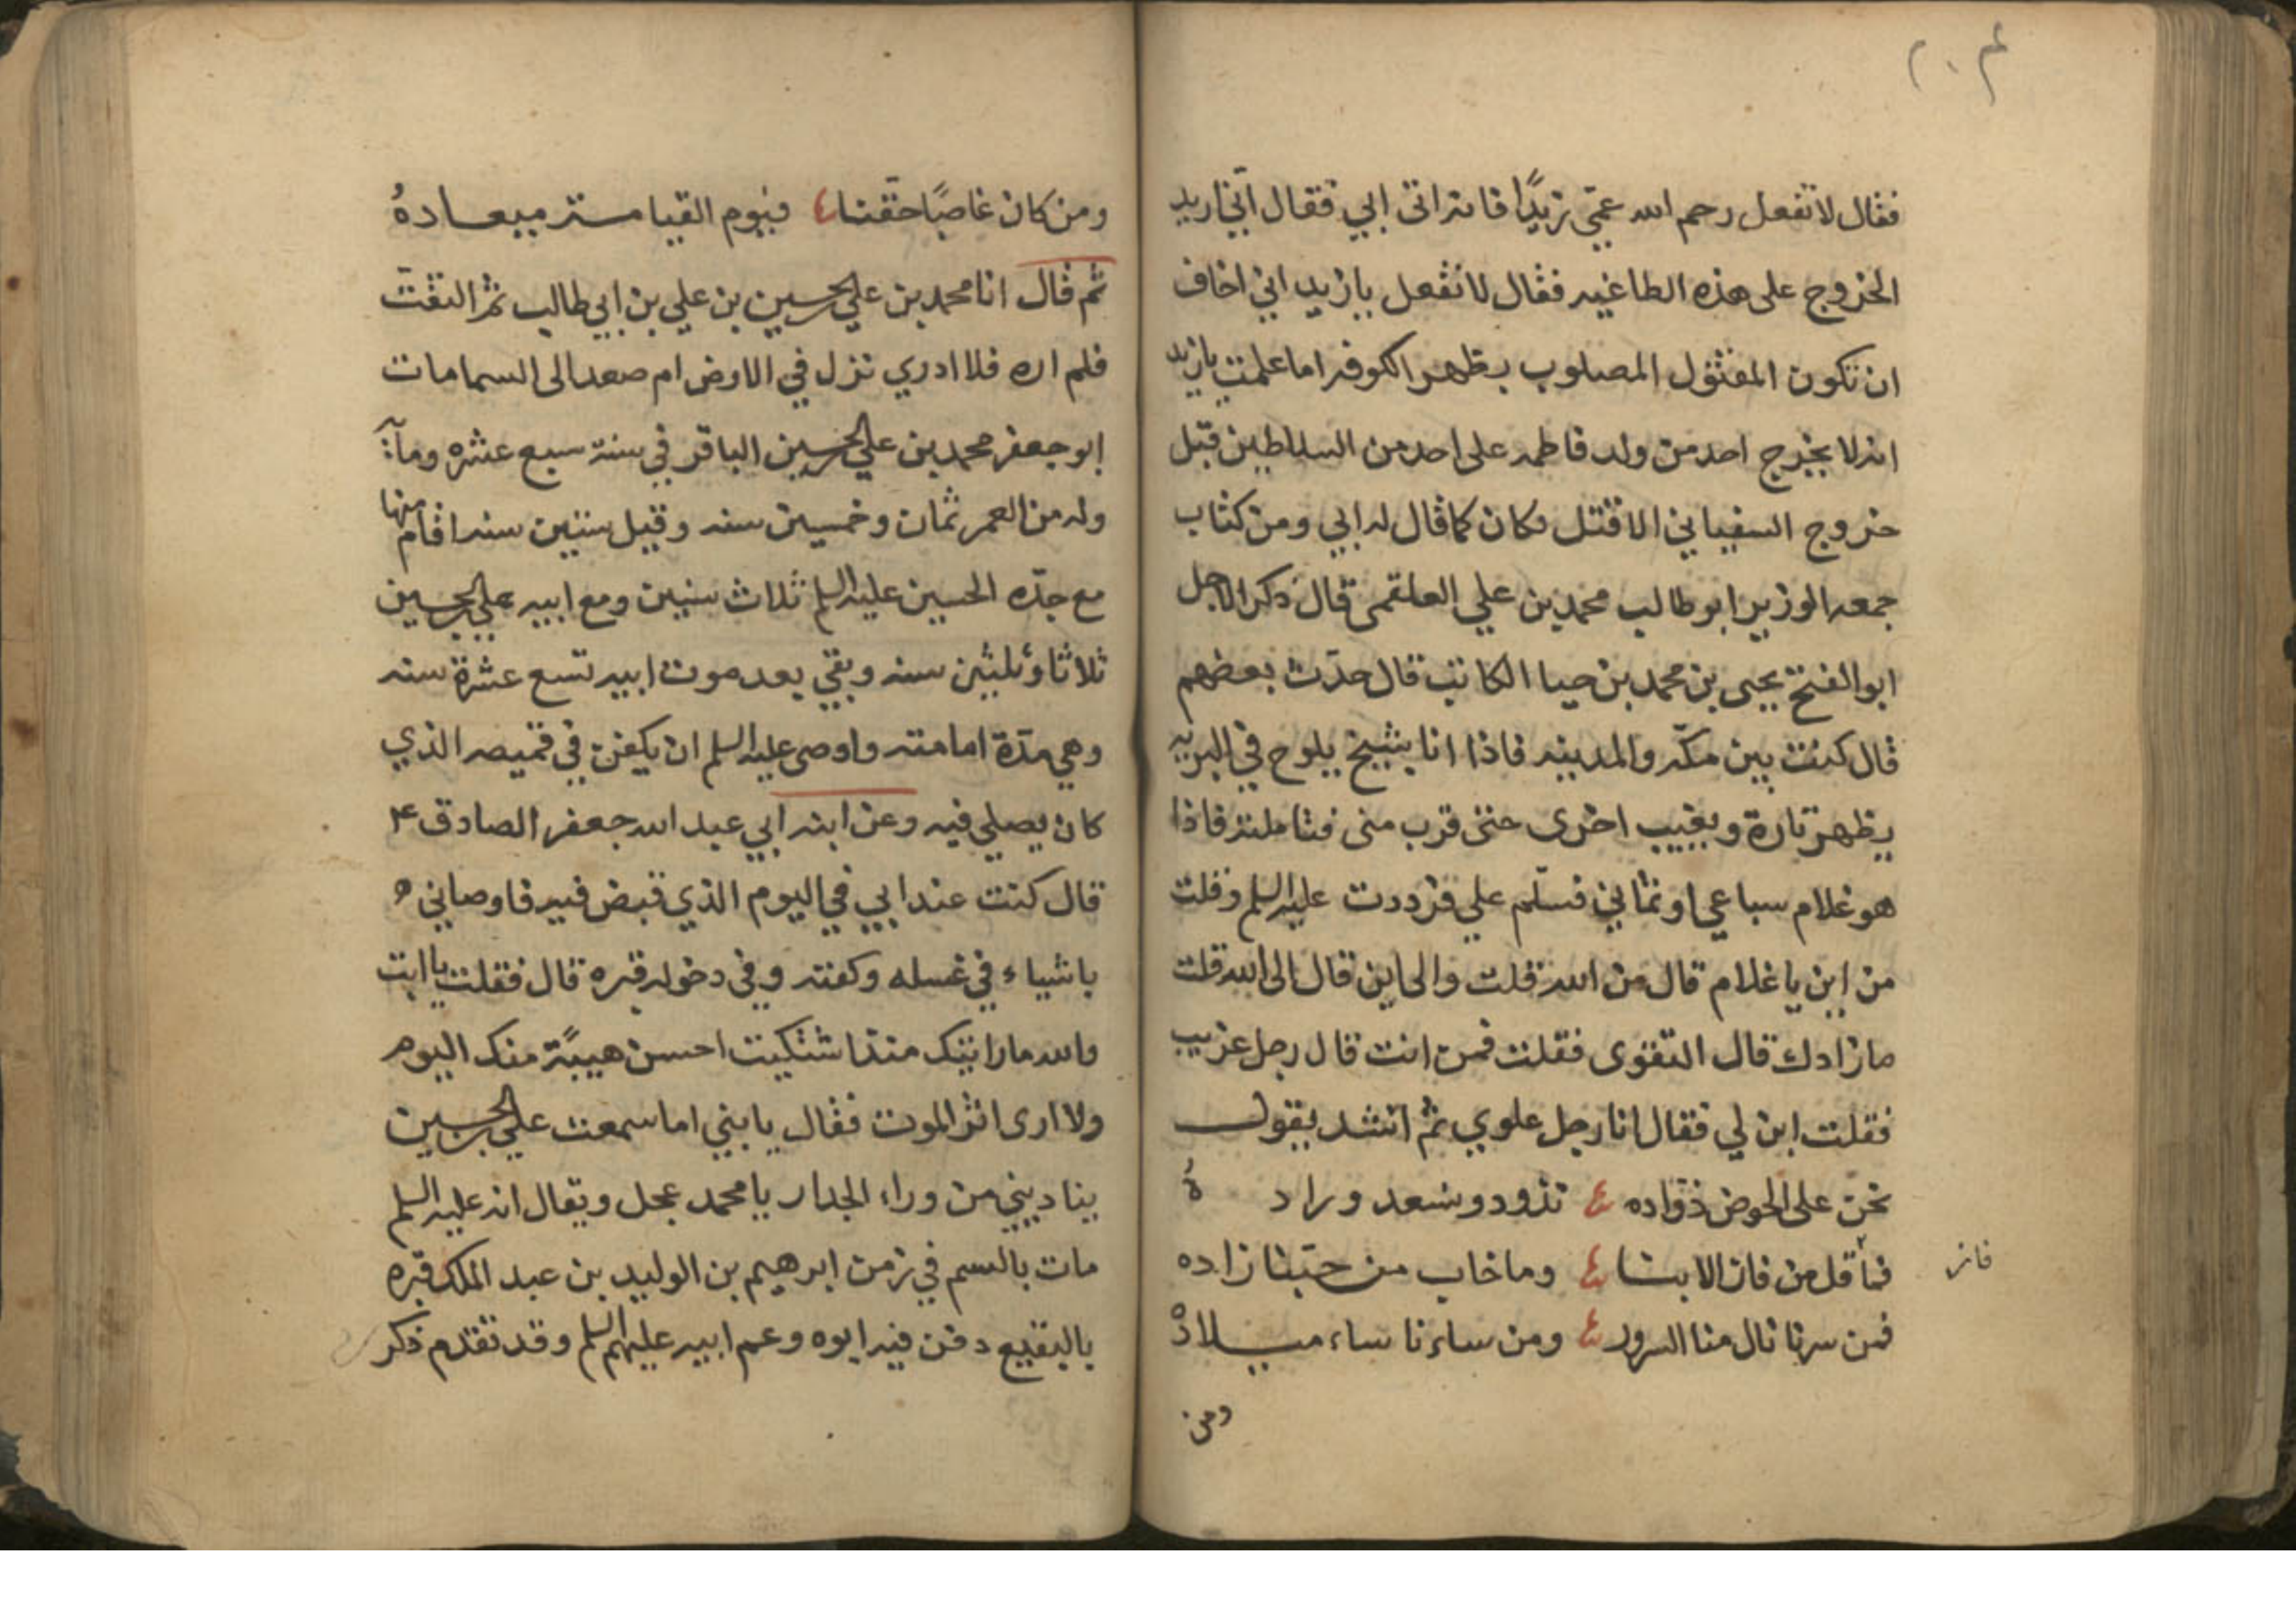 فقال لا تفعل رحم الله عمّي زيدًا فانه اتى ابي فقال اني اريد
الخروج على هذه الطاغيه فقال لا تفعل يا زيد اني اخاف
ان تكون المقتول المصلوب بظهر الكوفه اما علمت يا زيد
انه لا يخرج احد من ولد فاطمه على احد من السلاطين قبل
خروج السفياني الا قتل فكان كما قال له ابي ومن كتاب
جمعه الوزير ابو طالب محمد بن علي العلقمي قال ذكر الاجل
ابو الفتح يحيى بن محمد بن حيا الكاتب قال حدّث بعضهم
قال كنت بين مكّه والمدينه فاذا انا بشيخ يلوح في البريه
يظهر تارة ويغيب اخرى حتى قرب منى فتاملته فاذا
هو غلام سباعي او ثماني فسلّم علي فرددت عليه السلم وقلت
من اين يا غلام قال من الله فقلت والى اين قال الى الله قلت
ما زادك قال التقوى فقلت فمن انت قال رجل عربي
فقلت ابن لي فقال انا رجل علوي ثم انشد يقول
نحن على الحوض ذوّاده نذود ونسعد وراده
فما قل من فان الا بنا وما خاب من حبّنا زاده
فاز
فمن سرنا نال منا السرور ومن ساءنا ساء ميلاده
ومن
ومن كان غاصبًا حقّنا فيوم القيامة ميعاده
ثم قال انا محمد بن علي بن الحسين بن علي بن ابي طالب ثم التفتّ
فلم اره فلا ادري نزل في الارض ام صعد الى السما مات
ابو جعفر محمد بن علي بن الحسين الباقر في سنة سبع عشره ومآئة
وله من العمر ثمان وخمسين سنه وقيل ستين سنه اقام منها
مع جدّه الحسين عليه السلم ثلاث سنين ومع ابيه علي بن الحسين
ثلاثا وثلثين سنه وبقي بعد موت ابيه تسع عشرة سنه
وهي مدّة امامته واوصى عليه السلم ان يكفن في قميصه الذي
كان يصلي فيه وعن ابنه ابي عبد الله جعفر الصادق ع
قال كنت عند ابي في اليوم الذي قبض فيه فاوصاني
باشياء في غسله وكفنه وفي دخوله قبره قال فقلت يا ابت
والله ما رايتك منذ اشتكيت احسن هيئة منك اليوم
ولا ارى اثر الموت فقال يا بني اما سمعت علي بن الحسين
يناديني من وراء الجدار يا محمد عجل ويقال انه عليه السلم
مات بالسم في زمن ابرهيم بن الوليد بن عبد الملك قبره
بالبقيع دفن فيه ابوه وعم ابيه عليهم السلم وقد تقدم ذكر